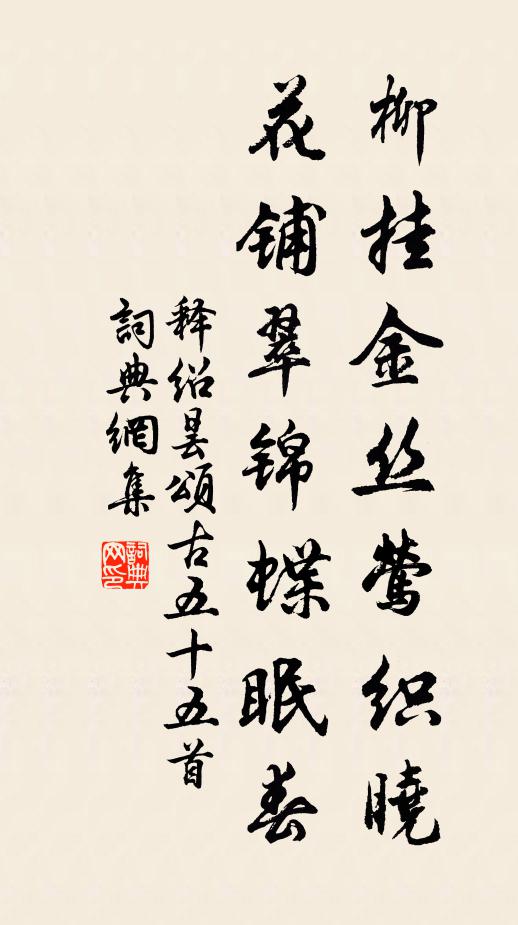 柳挂金丝莺织曉
花铺翠锦蝶眠春
释绍昙頌古五十五首
詞典網集
詞典网印